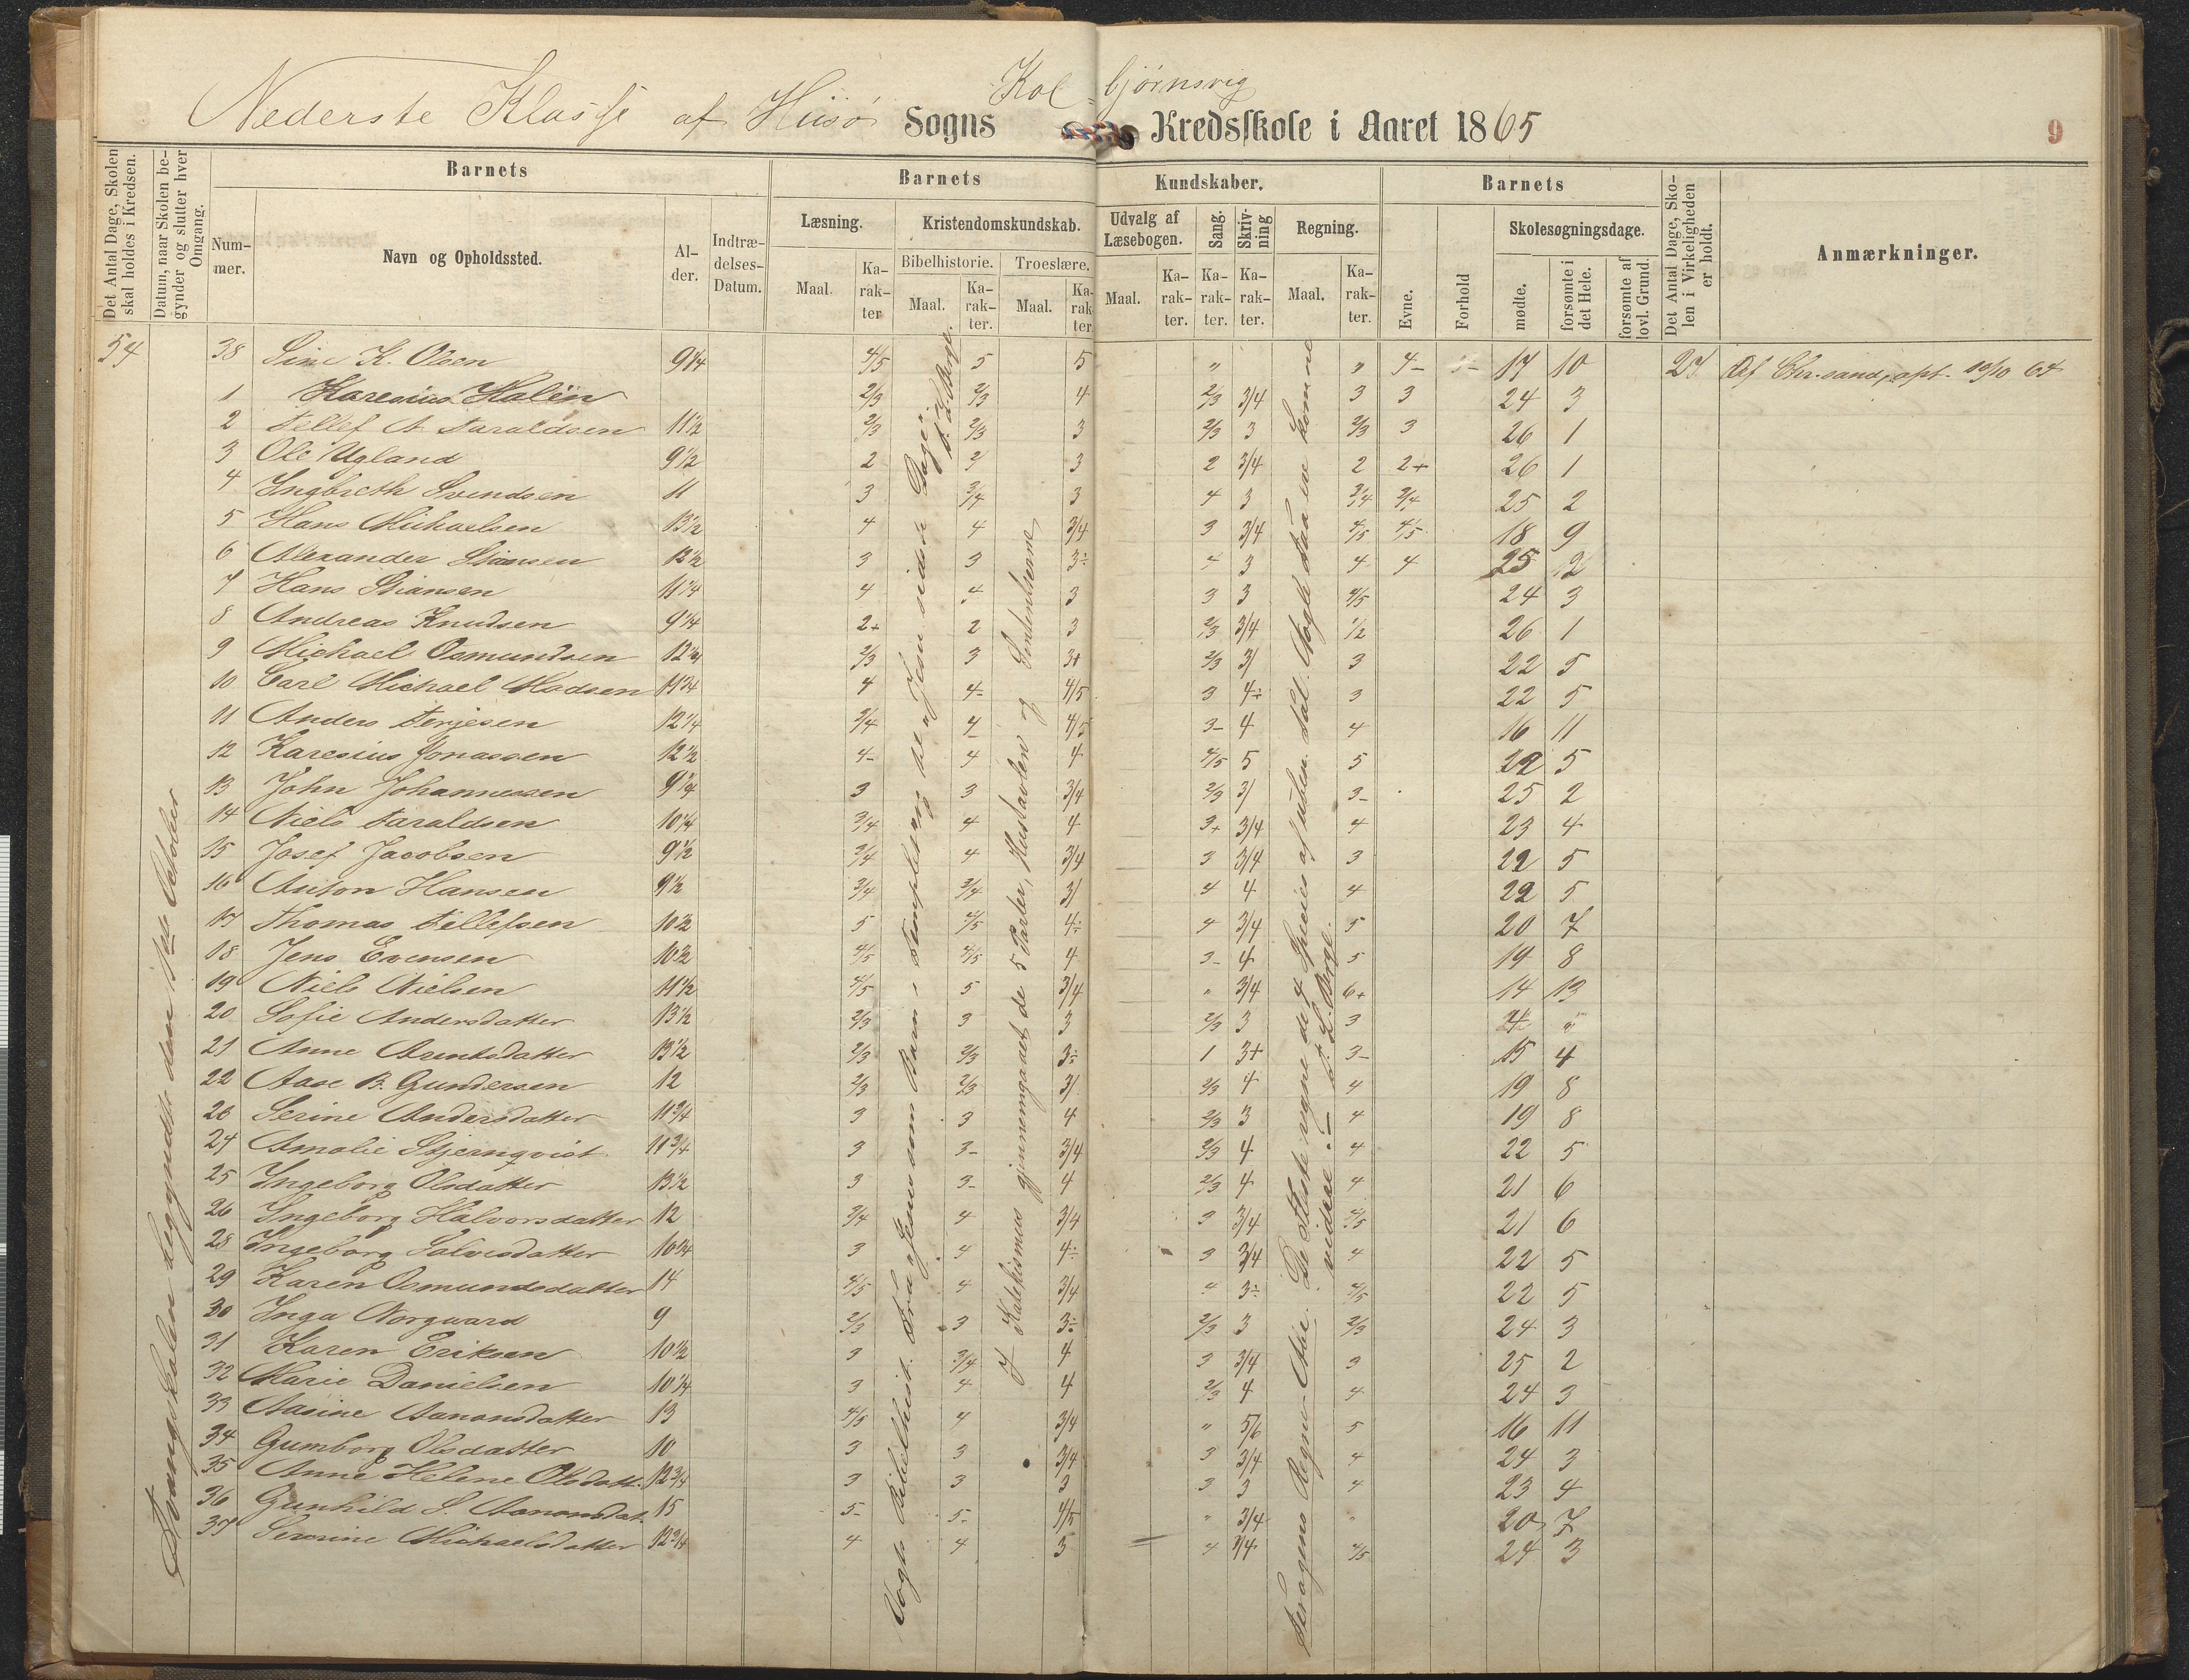 Kolbjørnsvig
Nederste Klasse af Hiisø Sogns Kredsskole i Aaret 1865
9
Det Antal Dage, Skolen skal holdes i Kredsen.
Datum, naar Skolen begynder og slutter hver Omgang.
Barnets
Barnets
Kundskaber.
Barnets
Det Antal Dage, Skolen i Virkeligheden er holdt.
Anmærkninger.
Nummer.
Navn og Opholdssted.
Alder.
Indtrædelses-Datum.
Læsning.
Kristendomskundskab.
Udvalg af Læsebogen.
Sang.
Skrivning
Regning.
Evne.
Forhold
Skolesøgningsdage.
Bibelhistorie.
Troeslære.
Maal. Karakter
Maal. Karakter.
Maal. Karakter.
Maal. Karakter.
Karakter.
Karakter.
Maal. Karakter.
mødte.
forsømte i det Hele.
forsømte af lovl. Grund.
54 38 Sine K. Olsen 9 1/4 4/5 5 5 " " 4- 17 10 27
1 Karesius Halén 2/3 2/3 4 2/3 3/4 3 3 24 3
2 Tellef A Taraldsen 11 1/2 2/3 2/3 3 2/3 3 2/3 3 26 1
3 Ole Ugland 9 1/2 2 2 3 2 3/4 2 2+ 26 1
4 Ingbreth Svendsen 11 3 3/4 3 4 3 3/4 3/4 25 2
5 Hans Michaelsen 13 1/2 4 4 3/4 3 3/4 4/5 4/5 18 9
6 Alexander Stiansen 12 1/2 3 3 3÷ 4 3 4 4 25 2
7 Hans Stiansen 11 1/4 4 4 3 3 3 4/5 24 3
8 Andreas Knudsen 9 1/4 2+ 2 3 2/3 3/4 1/2 26 1
9 Michael Osmundsen 12 1/4 2/3 3 3+ 2/3 3/ 3 22 5
10 Carl Michael Madsen 11 3/4 4 4- 4/5 3 4÷ 3 22 5
11 Anders Terjesen 12 1/4 3/4 4 4/5 3- 4 4 16 11
12 Karesius Jonassen 12 1/2 4- 4 4 4/5 5 5 22 5
13 John Johannessen 9 1/4 3 3 3/4 2/3 3/ 3- 25 2
14 Niels Taraldsen 10 1/4 3/4 4 4 3+ 3/4 4 23 4
15 Josef Jacobsen 9 1/2 3/4 4 3/4 3 3/4 3 22 5
16 Anton Hansen 9 1/2 3/4 3/4 3/ 4 4 4 22 5
17 Thomas Tellefsen 10 1/2 5 4/5 4÷ 4 3/4 5 20 7
18 Jens Evensen 10 1/2 4/5 4/5 4 3- 4 5 19 8
19 Niels Nielsen 11 1/2 4/5 5 3/4 " 3/4 6+ 14 13
20 Sofie Andersdatter 13 1/2 2/3 3 3 2/3 3 3
21 Anne Arentsdatter 13 1/2 2/3 2/3 3÷ 1 3+ 3- 15 4
22 Aase B. Gundersen 12 2/3 2/3 3/ 2/3 4 4 19 8
23 Serine Andersdatter 11 3/4 3 3 4 2/3 3 4 19 8
24 Amalie Stjernqvist 11 3/4 3 3- 3/4 2/3 4 4 22 5
25 Ingeborg Olsdatter 13 1/2 3 3- 4 2/3 4 4 21 6
26 Ingeborg Halvorsdatter 12 3/4 4 3/4 3 3/4 4/5 21 6
28 Ingeborg Salvesdatter 10 3/4 3 4 4÷ 3 3/4 4 22 5
29 Karen Osmundsdatter 14 4/5 4 3/4 4 3÷ 4/5 22 5
30 Inga Norgaard 9 2/3 3 3÷ 2/3 3 2/3 24 3
31 Karen Eriksen 10 1/2 3 3/4 4 3 3/4 3 25 2
32 Marie Danielsen 10 1/4 3 4 4 2/3 4 4 24 3
33 Aasine Aanonsdatter 13 4/5 4 3/4 " 5/6 5 16 11
34 Gumborg Olsdatter 10 3 3 3/4 3 3/4 4 24 3
35 Anne Helene Olsdatt. 12 3/4 3 3 3 3 3 4 23 4
36 Gunhild S. Aanonsdat. 15 5- 5- 4/5 " 3/4 " 20 7
37 Severine Michaelsdatter 12 3/4 4 4 5 4 3/4 4/5 24 3
Af Chr.sand, opt. 19/10 64
Omgangsskolen begyndte den 1ste October
Vogts Bibelhist. Fra „Jesus som Barn i Templet“ til „Jesu sidste Dage“.
I Katekismus gjennemgaaet de 5 Parter, Hustavlen og Sententserne
De fleste regne de 4 Species af uben. Tal. Nogle faa ere komne videre. – C. L. Berge.